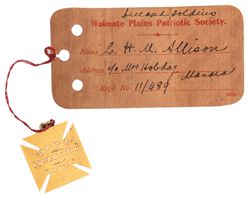 Deceased Soldiers
Waimate Plains Patriotic Society.
Name L. H. M. Allison
Address c/o Mrs Hobday
Manaia
Regd. No. 11/489